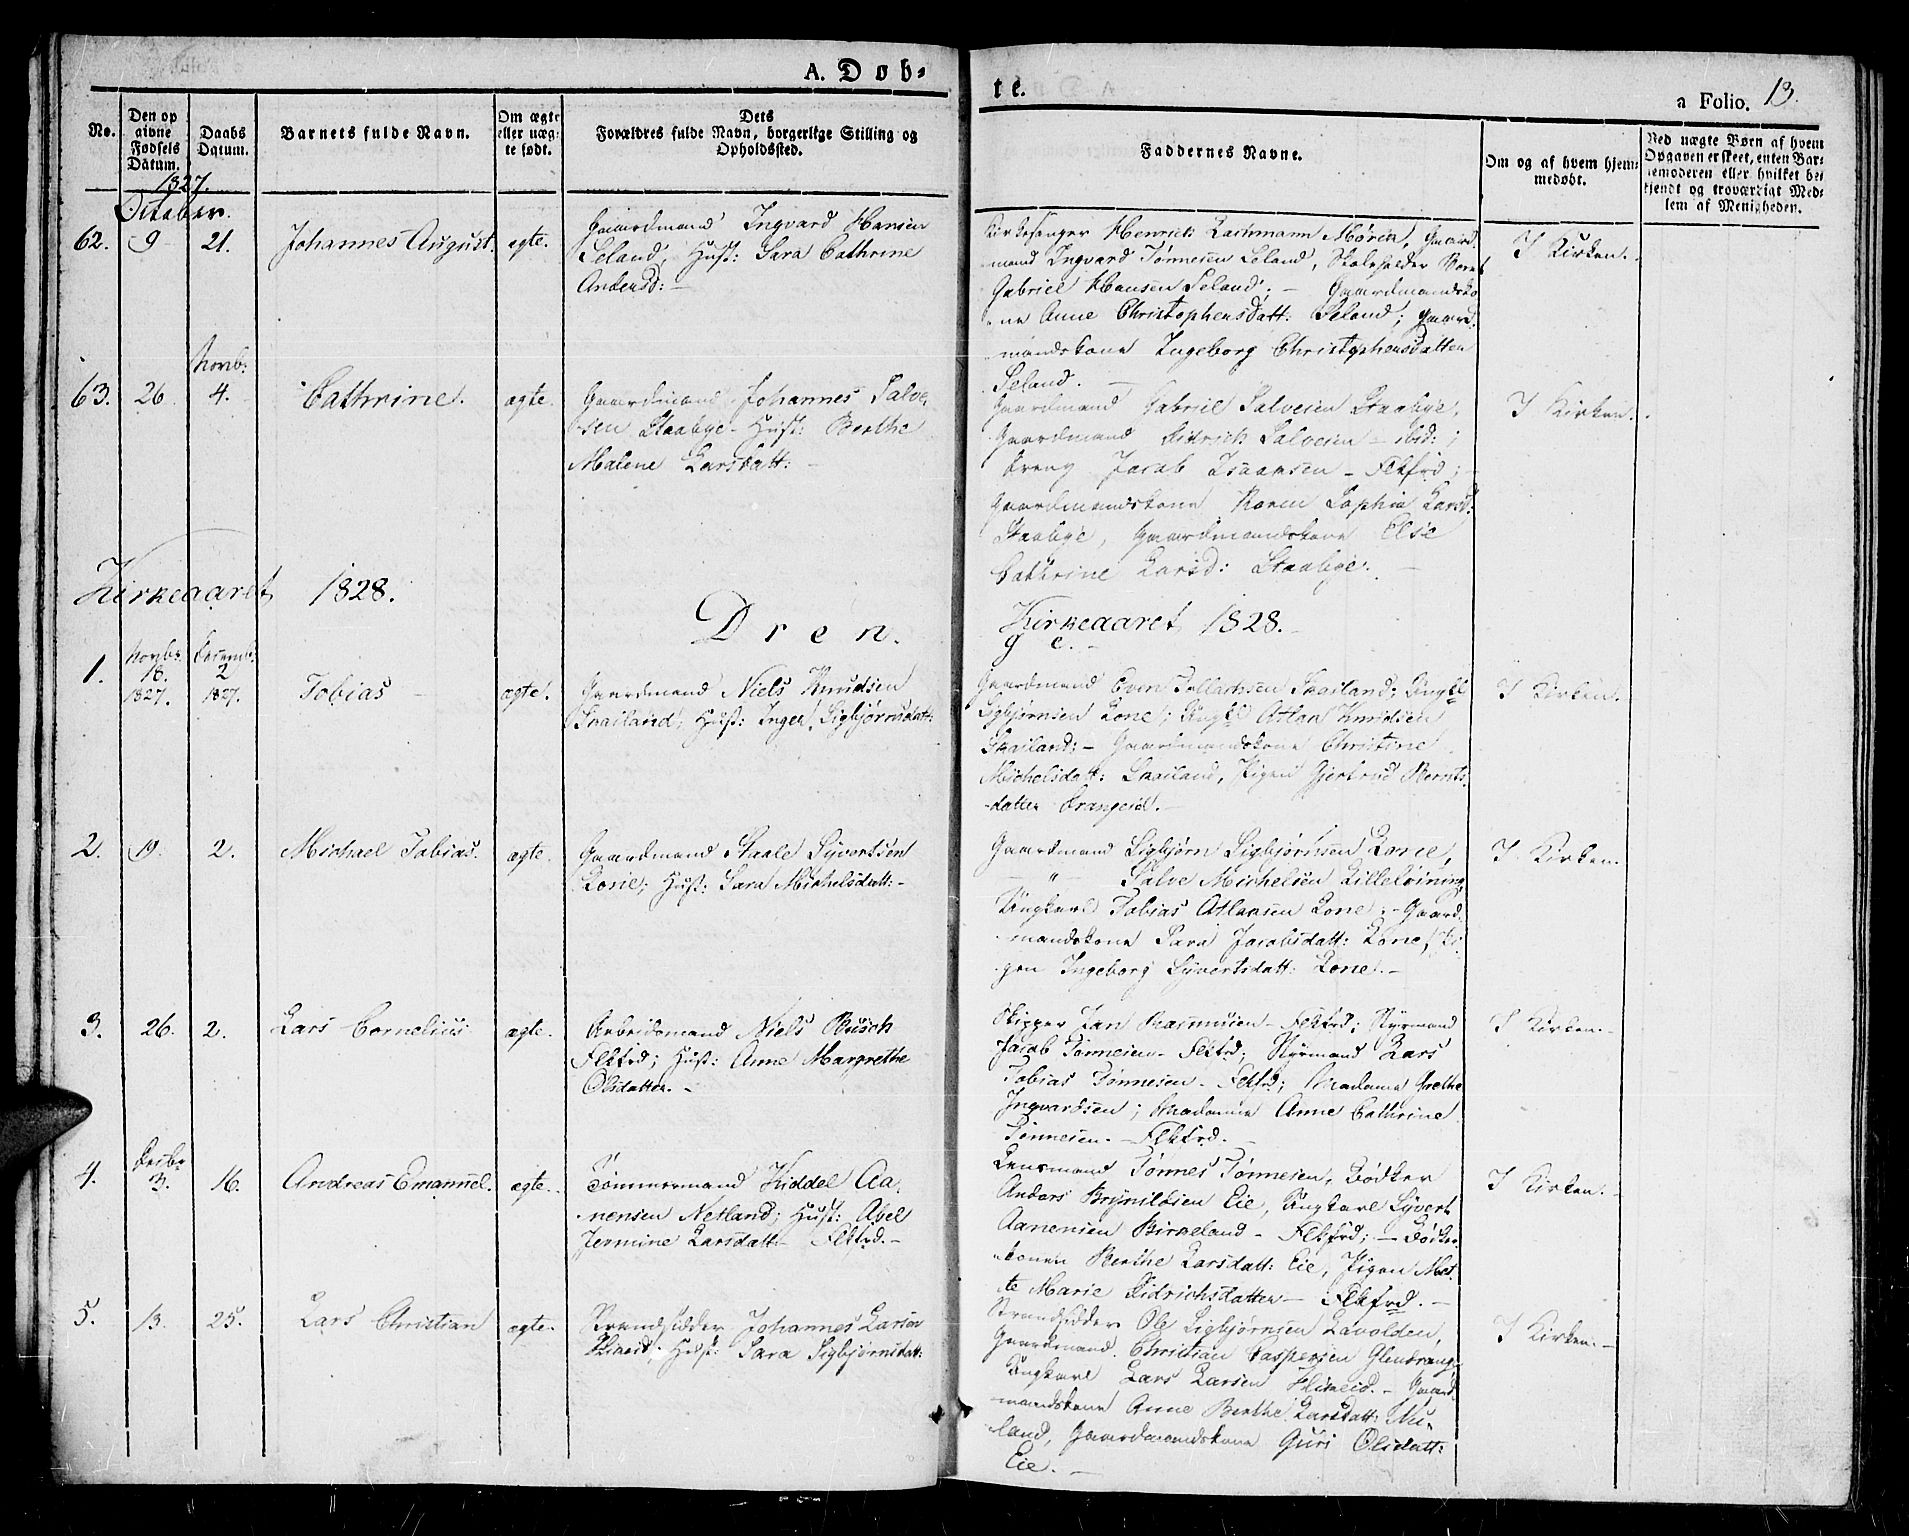 A. Døb-
te.
a Folio. 13.
No.
Den op
givne
Fødsels
Datum.
Daabs
Datum.
Barnets fulde Navn.
Om ægte
eller uæg-
te født.
Dets
Forældres fulde Navn, borgerlige Stilling og
Opholdssted.
Faddernes Navne.
Om og af hvem hjem-
medøbt.
Ved uægte Børn af hvem
Opgaven er skeet, enten Bar-
nemoderen eller hvilket be-
kjendt og troværdigt Med-
lem af Menigheden.
1827.
October.
62. 9 21. Johannes August. ægte.
Gaardmand Ingvard Hansen
Seland, Hust: Sara Cathrine
Andersd: –
Kirkesanger Henrich Lachmann Mørch, Gaard
mand Ingvard Tønnesen Seland, Skoleholder Bernt
Gabriel Hansen Seland; – Gaardmandsko
ne Anne Christophersdatt: Seland; Gaard
mandskone Ingeborg Christophersdatter
Seland. –
I Kirken.
Novbr:
63. 26 4. Cathrine. ægte.
Gaardmand Johannes Salve
sen Staabye – Hust: Berthe
Malene Larsdatt: –
Gaardmand Gabriel Salvesen Staabye,
Gaardmand Didrich Salvesen – ibid: ;
Dreng Jacob Isaaksen – Flkfrd;
Gaardmandskone Karen Sophie Larsd:
Staabye, Gaardmandskone Else
Cathrine Larsd: Staabye. –
I Kirken.
Kirkeaaret 1828.
Dren.
Kirkeaaret 1828.
ge. –
1. Novbr. 18. 1827. Decemb: 2 1827. Tobias – ægte.
Gaardmand Niels Knudsen
Skailand; Hust: Inger Sigbjørnsdatt:
Gaardmand Even Tellachsen Skailand; Ungkl
Sigbjørnsen Lone; Ungkl Atlak Knudsen
Skailand; – Gaardmandskone Christine
Michelsdatt: Skailand, Pigen Gjertrud Bernts
datter Drangeid. –
I Kirken.
2. 19. 2. Michael Tobias. ægte.
Gaardmand Staale Syvertsen
Lone; Hust: Sara Michelsdatt: –
Gaardmand Sigbjørn Sigbjørnsen Lone,
– " – Salve Michelsen Lilleløining
Ungkarl Tobias Atlaksen Lone; – Gaard
mandskone Sara Jacobsdatt: Lone, Pi
gen Ingeborg Syvertsdatt: Lone. –
I Kirken.
3. 26. 2. Lars Cornelius. ægte.
Arbeidsmand Niels Busch
Flkfrd; Hust: Anne Margrethe
Olsdatter. –
Skipper Jan Rasmusen – Flkfrd; Styrmand
Jacob Tønnesen – Flkfrd; Styrmand Lars
Tobias Tønnesen – Flkfrd; Madame Grethe
Ingvardsen; Madame Anne Cathrine
Tønnesen. – Flkfrd. –
I Kirken. –
4. Decbr 3. 16. Andreas Emanuel. ægte.
Tømmermand Kiddel Aa
nensen Netland; Hust: Abel
Jermine Larsdatt – Flkfrd. –
Lensmand Tønnes Tønnesen, Bødker
Anders Brynildsen Eie, Ungkarl Syvert
Aanensen Birkeland – Flkfrd; – Bødker
konen Berthe Larsdatt: Eie, Pigen Met
te Marie Didrichsdatter – Flkfrd. –
I Kirken. –
5. 13. 25. Lars Christian ægte.
Strandsidder Johannes Larsen
Hust: Sara Sigbjørnsdatt:
Strandsidder Ole Sigbjørnsen Lavolden,
Gaardmand Christian Caspersen Glendrange
Ungkarl Lars Larsen – Gaard
mandskone Anne Berthe Larsdatt: Nu
land, Gaardmandskone Guri Olsdatt:
Eie. –
I Kirken. –